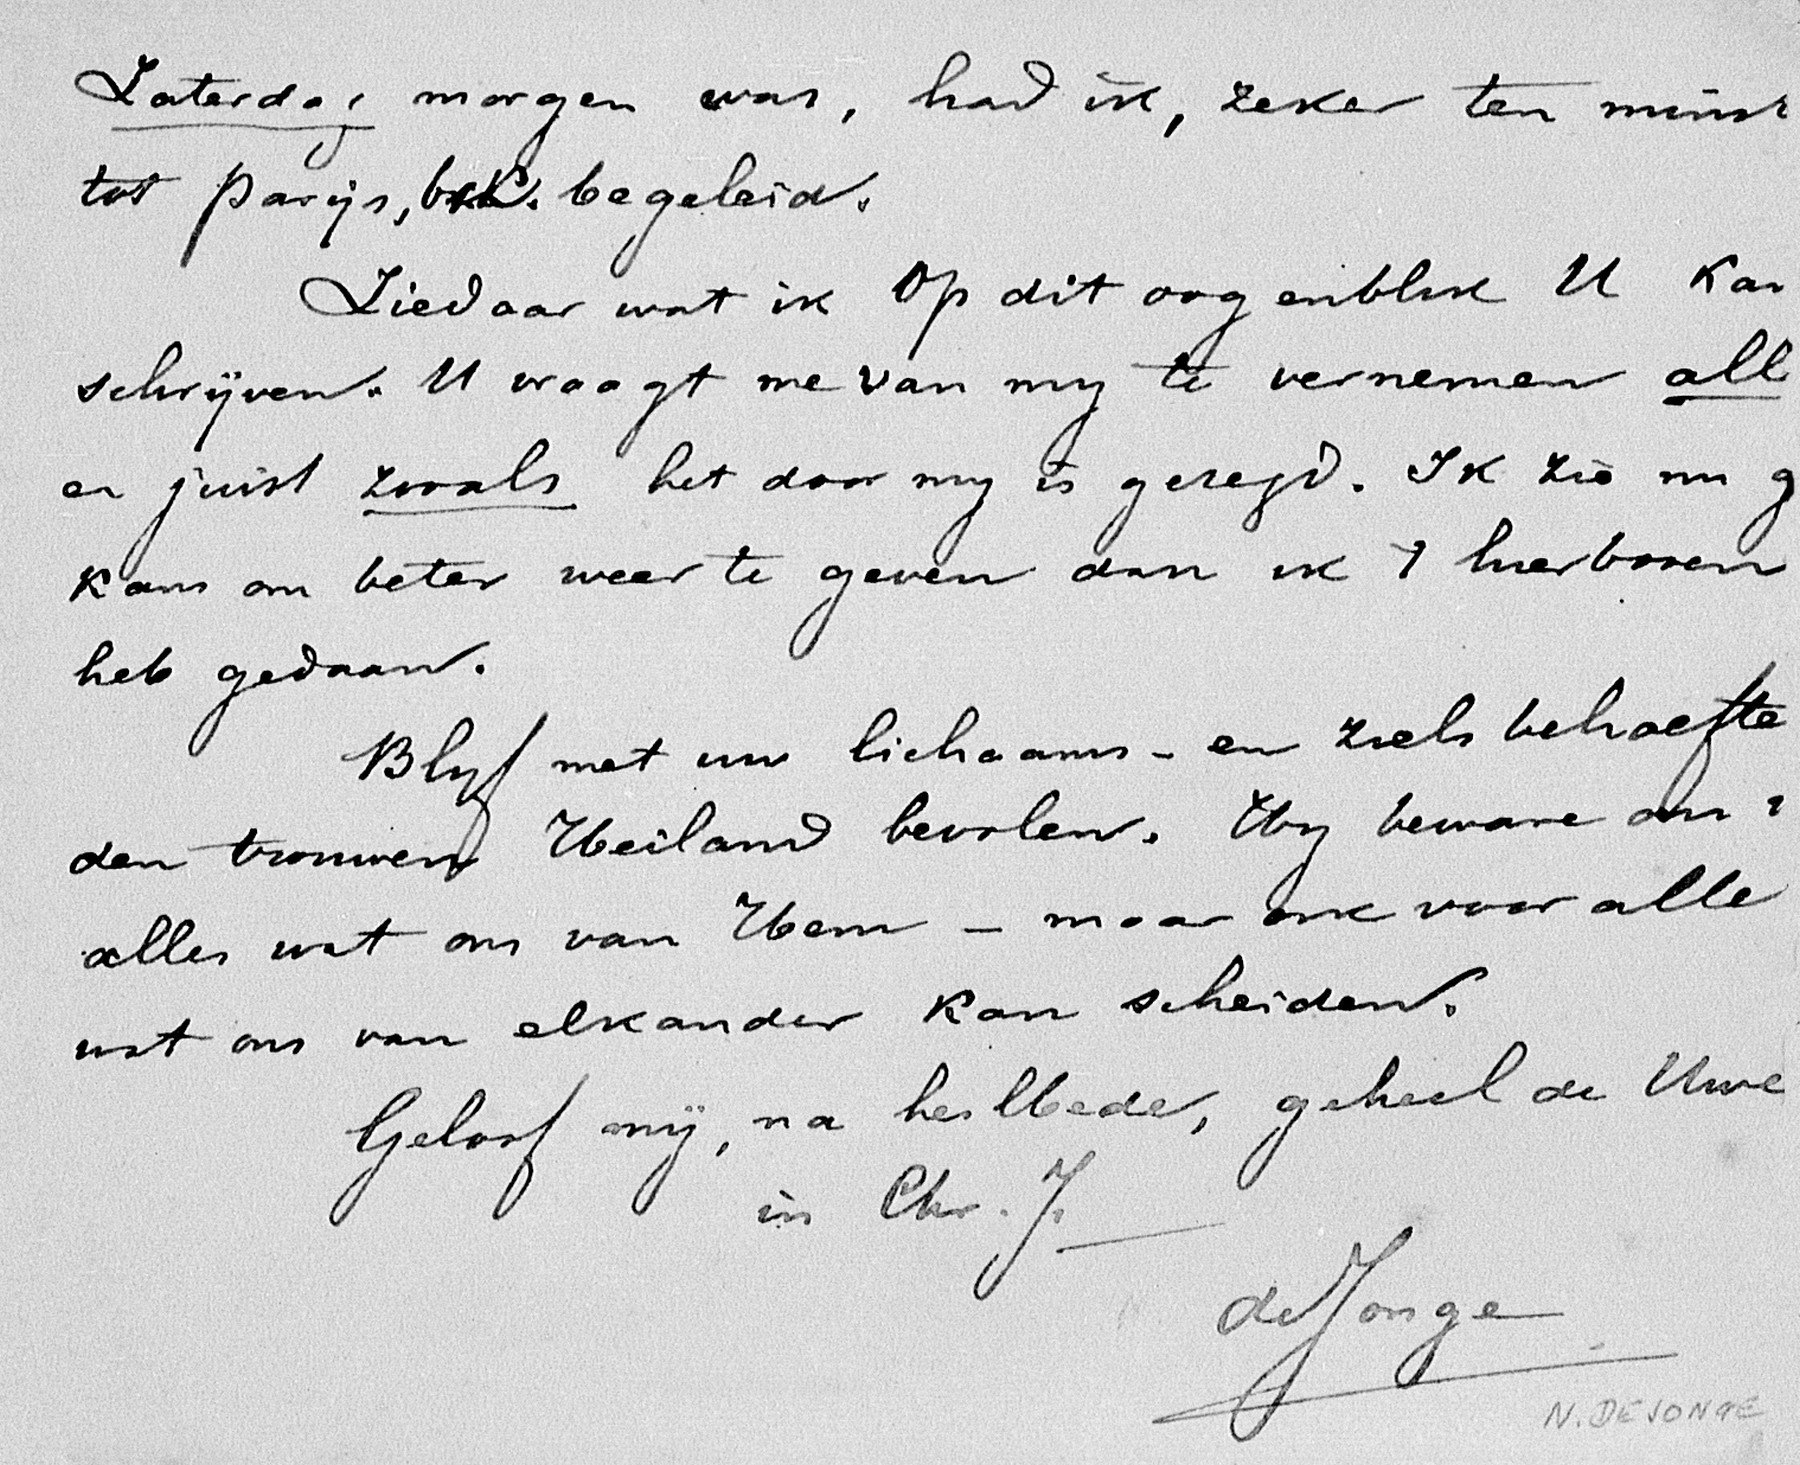 Zaterdag morgen was, had ik, zeker ten minst
tot Parijs, begeleid.
Ziedaar wat ik op dit oogenblik U kan
schrijven. U vraagt me van my te vernemen all
en juist zooals het door my is gezegd. Ik zie nu g
kans om beter weer te geven dan ik 't hierboven
heb gedaan.
Blyf met uw lichaams- en ziels behoefte
den trouwen Heiland bevolen. Hy beware ons
alles wat ons van Hem - maar ook voor alle
wat ons van elkander kan scheiden.
Geloof mij, na heilbede, geheel de Uwe
in Chr. J.
de Jonge
N. DE JONGE